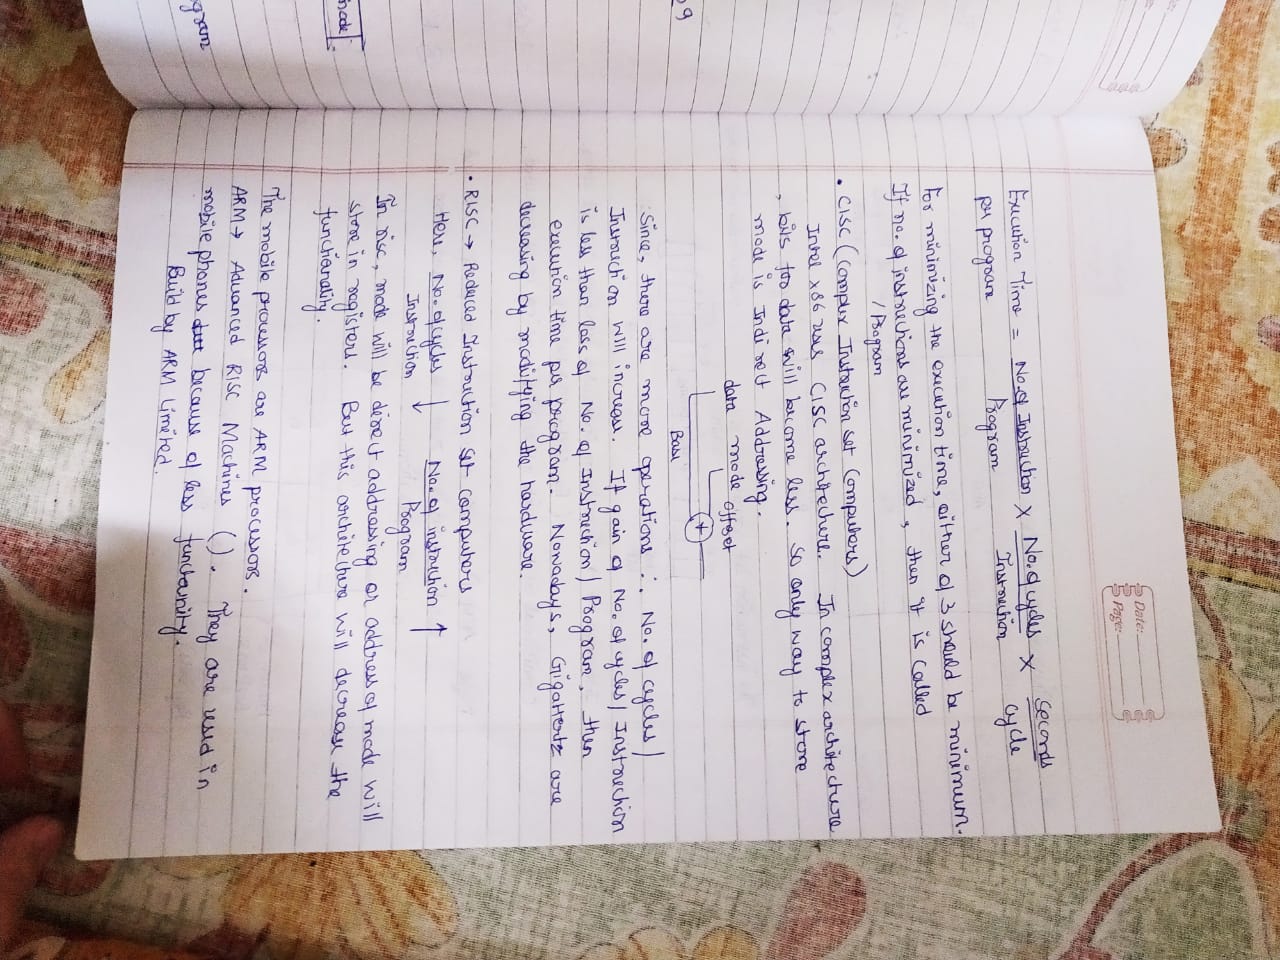 Date:
Page:
Execution Time = No. of Instruction X No. of cycles X Seconds
per program Program Instruction cycle
For minimizing the execution time, either of 3 should be minimum.
If no. of instructions are minimized, then it is called
/Program
• CISC (Complex Instruction set Computers)
Intel x86 uses CISC architecture. In complex architecture
, bits to data will become less. So only way to store
mode is Indirect Addressing.
data mode offset
+
Base
Since, there are more operations ∴ No. of cycles/
Instruction will increase. If gain of No. of cycles/Instruction
is less than loss of No. of Instruction/Program, then
execution time per program. Nowadays, GigaHertz are
decreasing by modifying the hardware.
• RISC → Reduced Instruction set computers
Here, No. of cycles ↓ No. of instruction ↑
Instruction ↓ Program
In risc, mode will be direct addressing or address of mode will
store in registers. But this architecture will decrease the
functionality.
The mobile processors are ARM processors.
ARM → Advanced RISC Machines (). They are used in
mobile phones because of less functanity.
Build by ARM Limited.
mode
gram
9